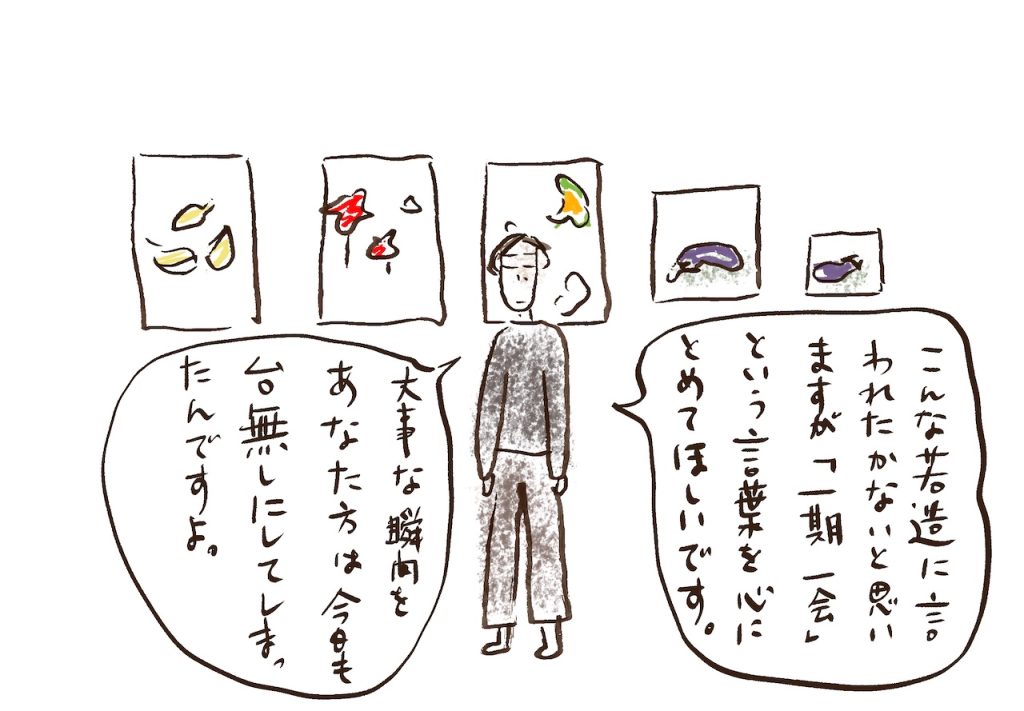 こんな若造に言
われたかないと思い
ますが「一期一会」
という言葉を心に
とめてほしいです。
大事な瞬間を
あなた方は今日も
台無しにしてしまっ
たんですよ。